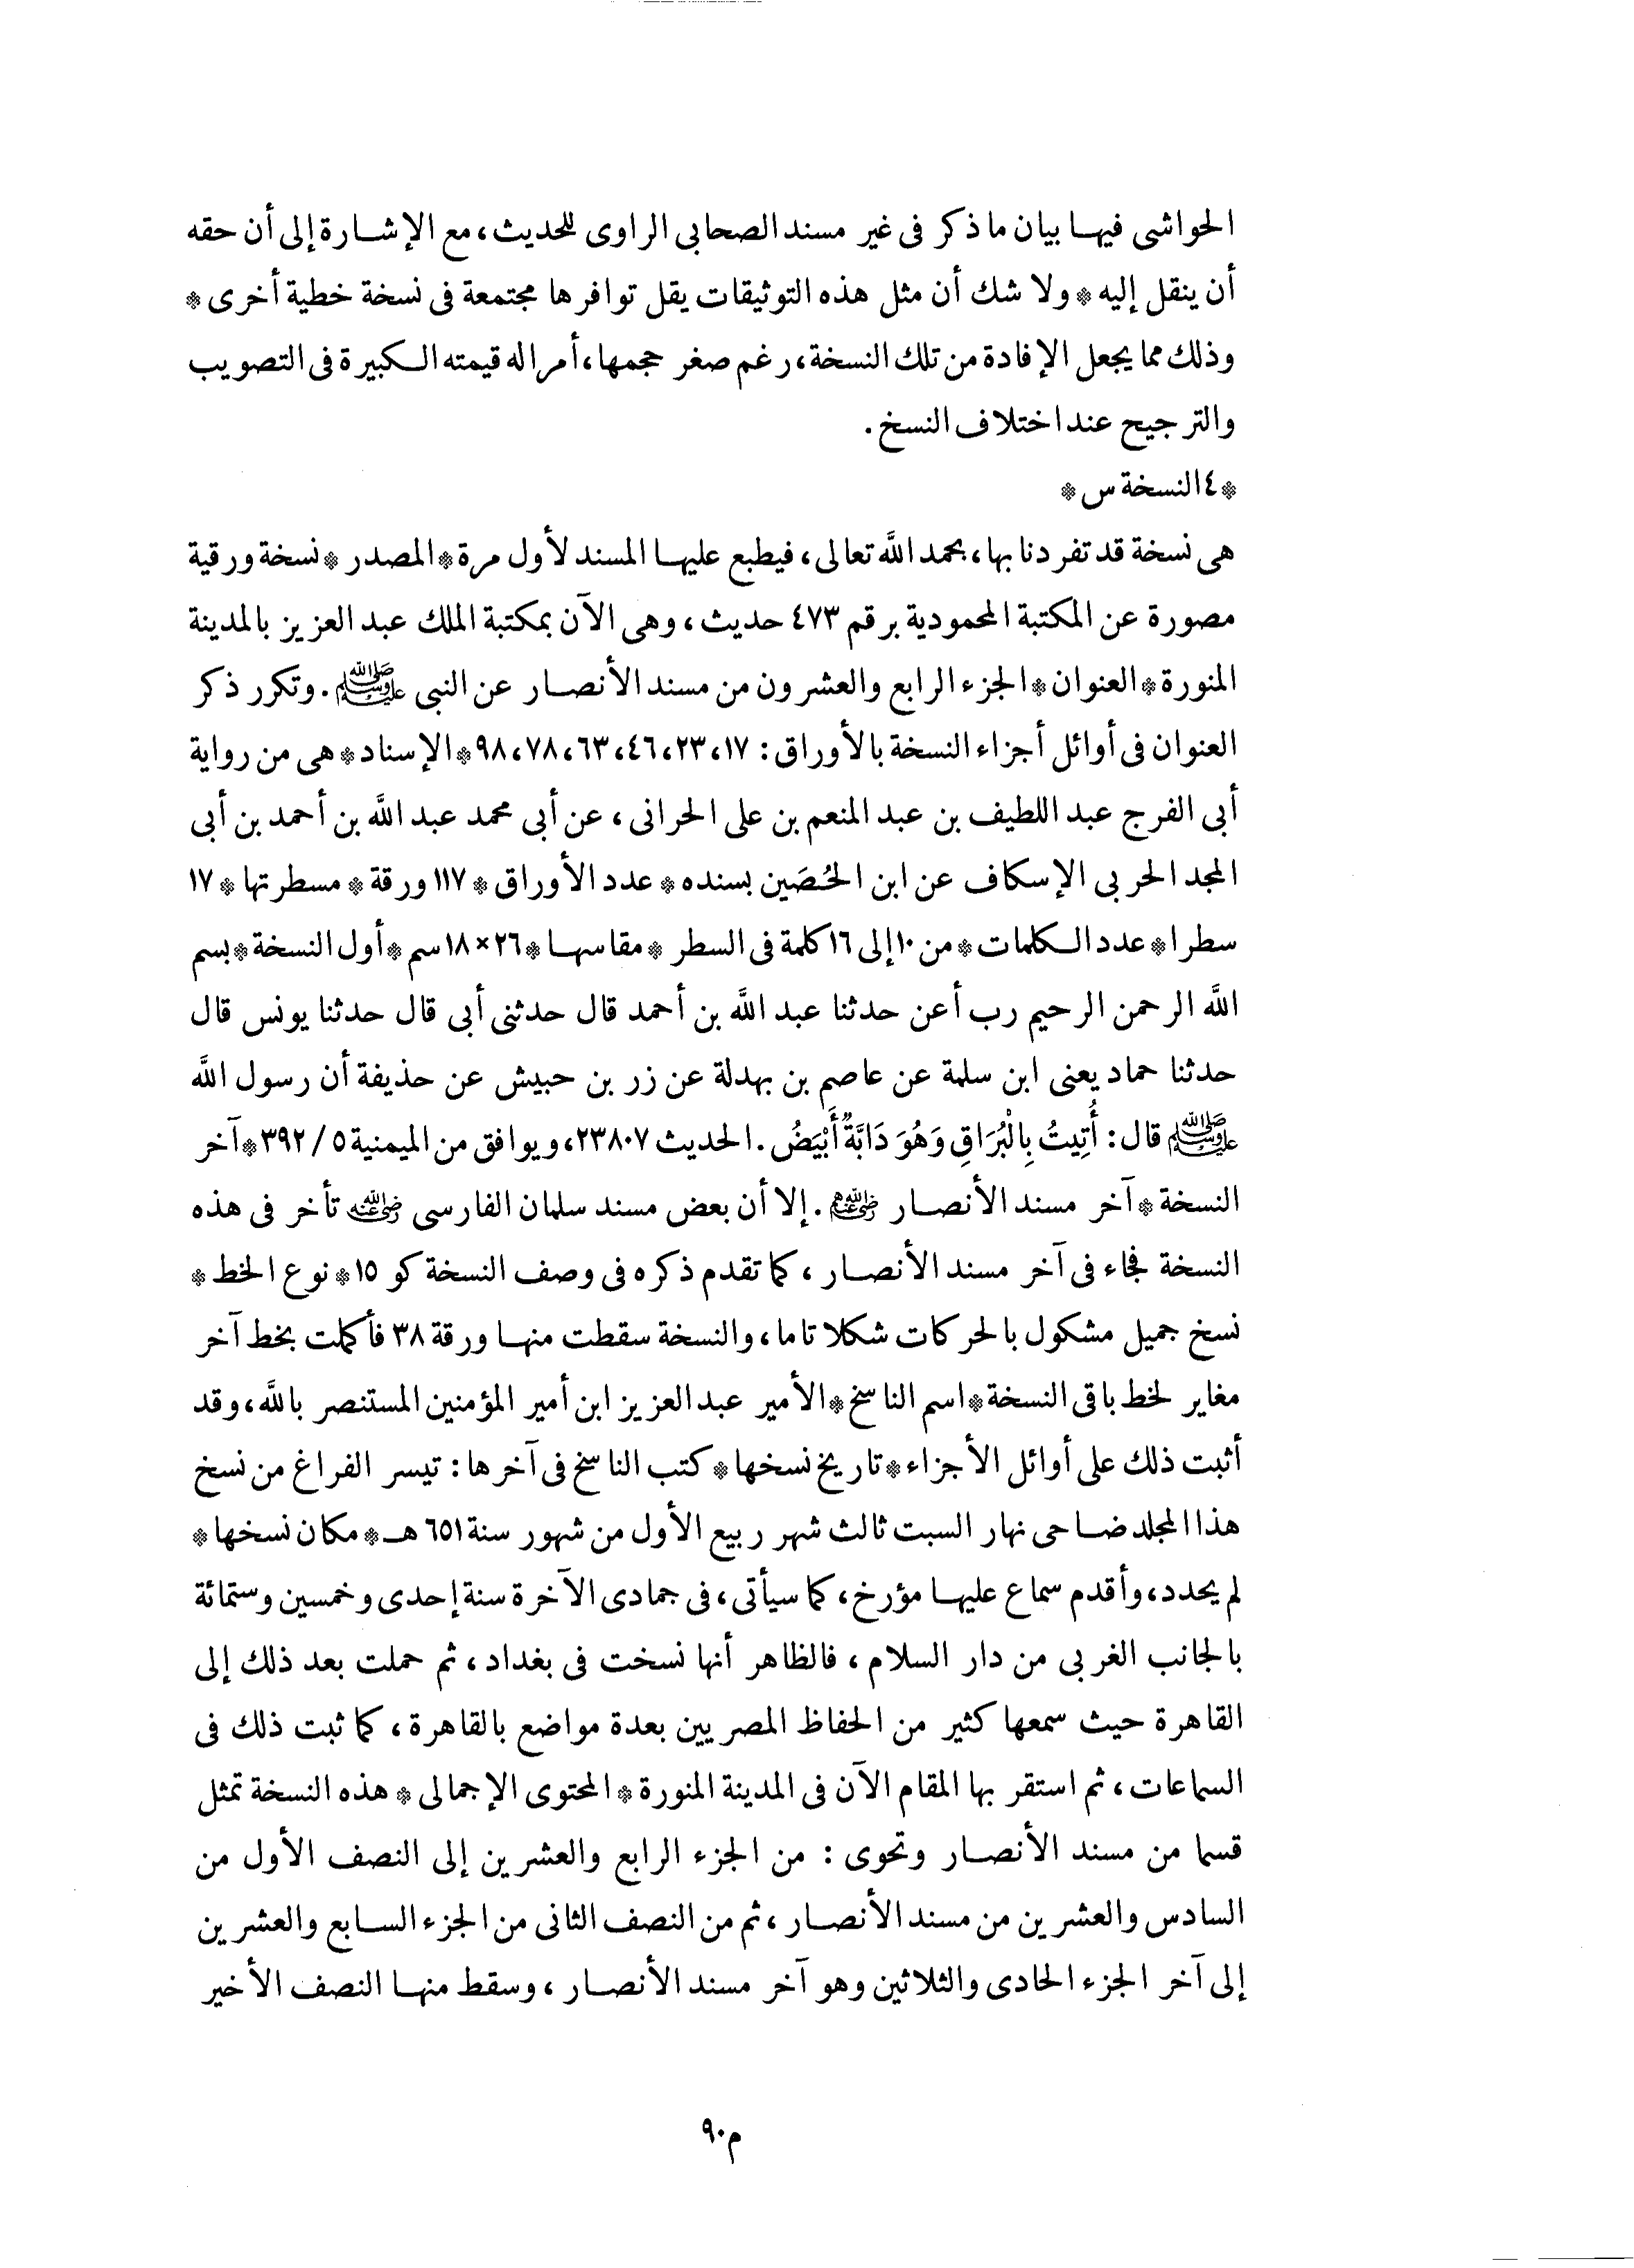 الحواشى فيها بيان ما ذكر فى غير مسند الصحابى الراوى للحديث، مع الإشارة إلى أن حقه
أن ينقل إليه * ولا شك أن مثل هذه التوثيقات يقل توافرها مجتمعة فى نسخة خطية أخرى *
وذلك مما يجعل الإفادة من تلك النسخة، رغم صغر حجمها، أمرا له قيمته الكبيرة فى التصويب
والترجيح عند اختلاف النسخ.
* ٤ النسخة س *
هى نسخة قد تفردنا بها، بحمد الله تعالى، فيطبع عليها المسند لأول مرة * المصدر * نسخة ورقية
مصورة عن المكتبة المحمودية برقم ٤٧٣ حديث، وهى الآن بمكتبة الملك عبد العزيز بالمدينة
المنورة * العنوان * الجزء الرابع والعشرون من مسند الأنصار عن النبى ﷺ. وتكرر ذكر
العنوان فى أوائل أجزاء النسخة بالأوراق: ١٧، ٢٣، ٤٦، ٦٣، ٧٨، ٩٨ * الإسناد * هى من رواية
أبى الفرج عبد اللطيف بن عبد المنعم بن على الحرانى، عن أبى محمد عبد الله بن أحمد بن أبى
المجد الحربى الإسكاف عن ابن الحُصَين بسنده * عدد الأوراق * ١١٧ ورقة * مسطرتها * ١٧
سطرا * عدد الكلمات * من ١٠ إلى ١٦ كلمة فى السطر * مقاسها * ٢٦ × ١٨ سم * أول النسخة * بسم
الله الرحمن الرحيم رب أعن حدثنا عبد الله بن أحمد قال حدثنى أبى قال حدثنا يونس قال
حدثنا حماد يعنى ابن سلمة عن عاصم بن بهدلة عن زر بن حبيش عن حذيفة أن رسول الله
ﷺ قال: أُتِيتُ بِالْبُرَاقِ وَهُوَ دَابَّةٌ أَبْيَضُ. الحديث ٢٣٨٠٧، ويوافق من الميمنية ٥/ ٣٩٢ * آخر
النسخة * آخر مسند الأنصار رضي الله عنهم. إلا أن بعض مسند سلمان الفارسى رضي الله عنه تأخر فى هذه
النسخة فجاء فى آخر مسند الأنصار، كما تقدم ذكره فى وصف النسخة كو ١٥ * نوع الخط *
نسخ جميل مشكول بالحركات شكلا تاما، والنسخة سقطت منها ورقة ٣٨ فأكملت بخط آخر
مغاير لخط باقى النسخة * اسم الناسخ * الأمير عبد العزيز ابن أمير المؤمنين المستنصر بالله، وقد
أثبت ذلك على أوائل الأجزاء * تاريخ نسخها * كتب الناسخ فى آخرها: تيسر الفراغ من نسخ
هذا المجلد ضاحى نهار السبت ثالث شهر ربيع الأول من شهور سنة ٦٥١ هـ * مكان نسخها *
لم يحدد، وأقدم سماع عليها مؤرخ، كما سيأتى، فى جمادى الآخرة سنة إحدى وخمسين وستمائة
بالجانب الغربى من دار السلام، فالظاهر أنها نسخت فى بغداد، ثم حملت بعد ذلك إلى
القاهرة حيث سمعها كثير من الحفاظ المصريين بعدة مواضع بالقاهرة، كما ثبت ذلك فى
السماعات، ثم استقر بها المقام الآن فى المدينة المنورة * المحتوى الإجمالى * هذه النسخة تمثل
قسما من مسند الأنصار وتحوى: من الجزء الرابع والعشرين إلى النصف الأول من
السادس والعشرين من مسند الأنصار، ثم من النصف الثانى من الجزء السابع والعشرين
إلى آخر الجزء الحادى والثلاثين وهو آخر مسند الأنصار، وسقط منها النصف الأخير
م٩٠